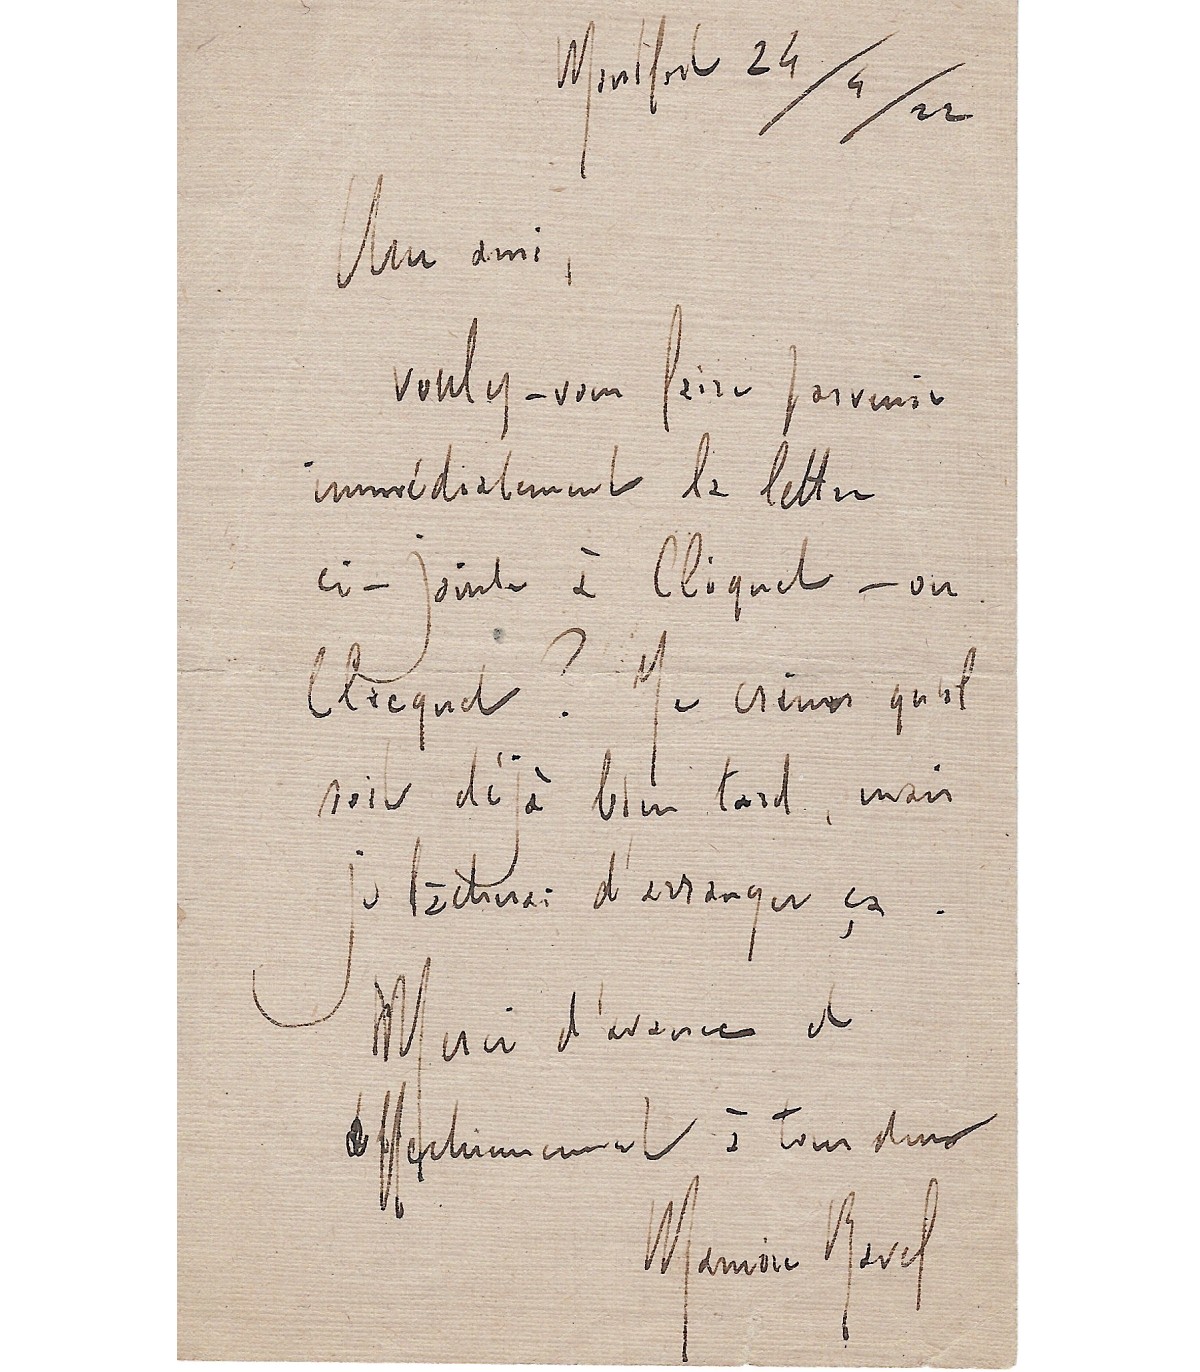 Montfort 24/4/22
Cher ami,
voulez-vous faire parvenir
immédiatement la lettre
ci-jointe à Cliquet – ou
Clicquet ? Je crains qu'il
soit déjà bien tard, mais
je tâcherai d'arranger ça.
Merci d'avance et
affectueusement à tous deux
Maurice Ravel